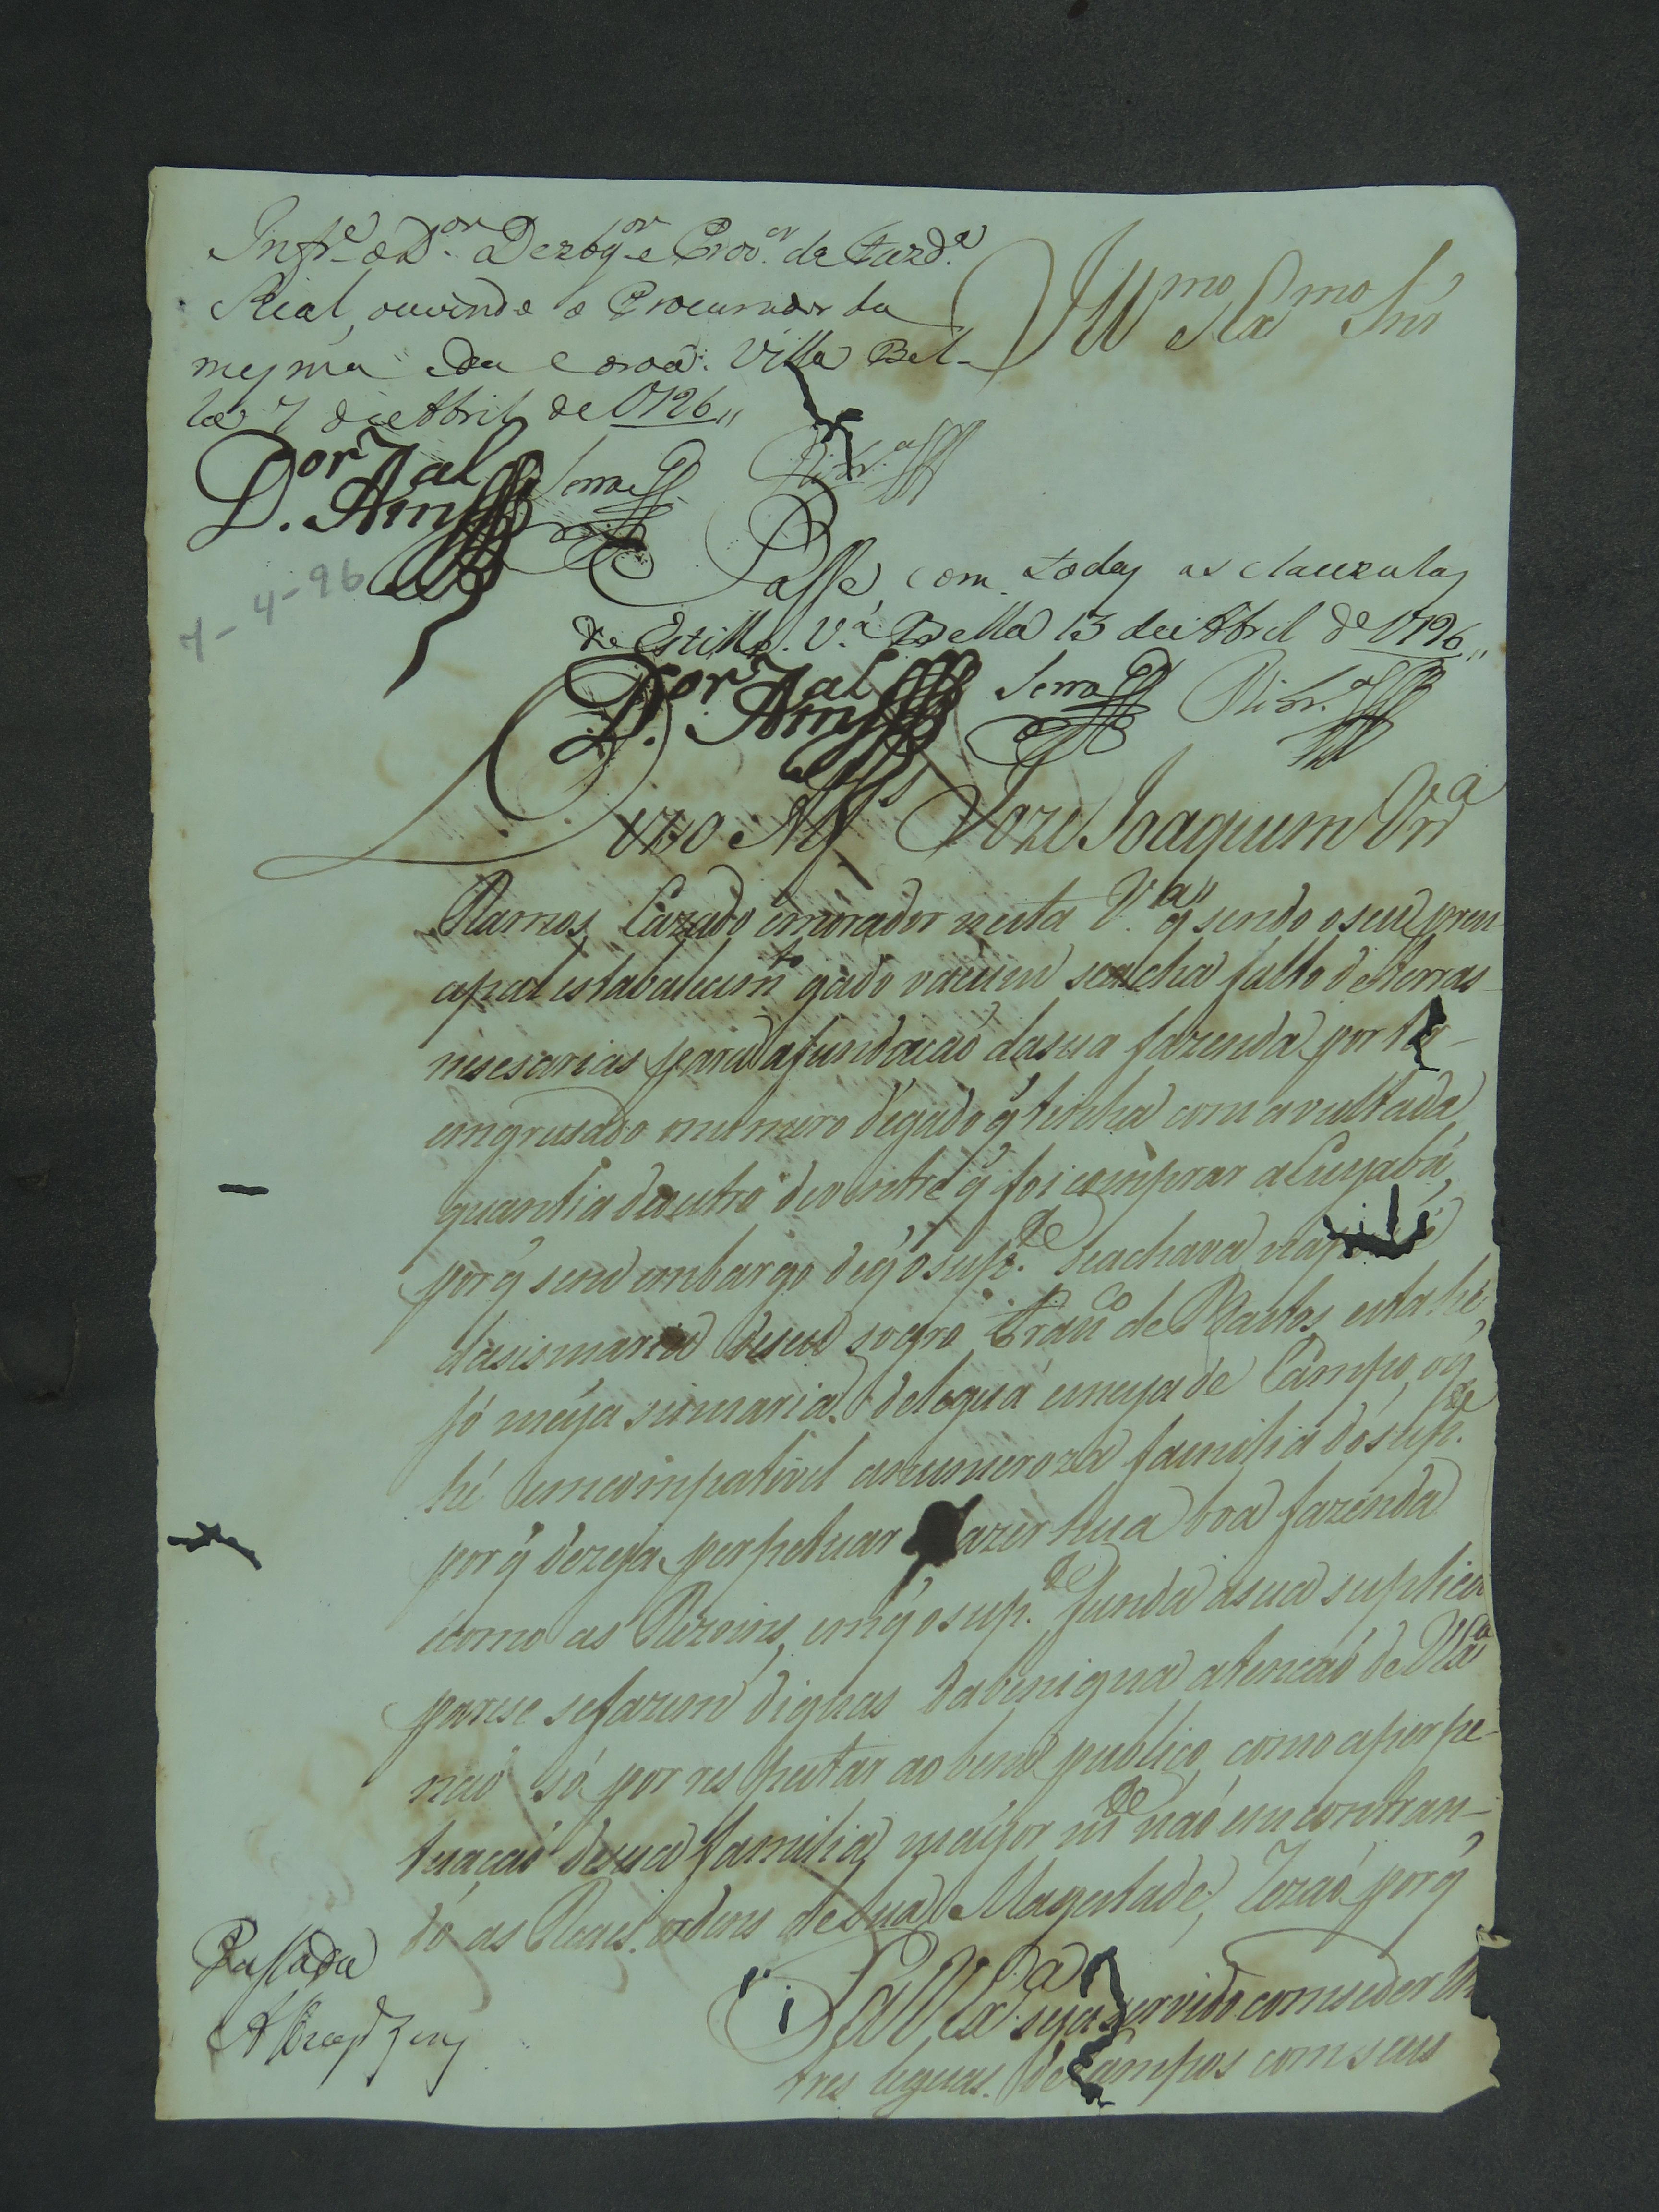 Infr.e o D.or Dezbg.or e Prov.or da Fazd.a
Real, ouvindo o Procurador da
mesma e da Coroa. Villa Bel-
la 7 de Abril de 1796,,
Ill.mo e Ex.mo Snr̃
D.or Jal
D. Am
Serra
Ribr.o
7-4-96
Passe com todas as clauzulas
de Estillo. V.a Bella 13 de Abril de 1796,,
D.or Jal
D. Am
Serra
Ribr.o
Diz o Alfs Joze Joaquim
Ramos Cazado e morador nesta V.a q̃ sendo o seu prin-
cipal estabalecim.to gado vacum se acha falto de terras
nesesarias para a fundacaõ da sua fazenda por ter
emgrusado o numero de gado q̃ tinha com avultada
quantia de outro q̃ foi comprar a Cuyabá,
por q̃ sem embargo de q̃ o sup.te se achava na
da sismaria de seu sogro Franc.o de Bastos, esta hé
só meýa sismaria de legua e meya de Campo, o q̃
hé emcompativel a numeroza familia do sup.te
por q̃ dezeja perpetuar fazer hua boa fazenda
e como as Rezoins, em q̃ o sup.te funda a sua suplica
parese se fazem dignas da benigna atencaõ de V Ex.a
naõ só por respeitar ao bem publico, como a perpe-
tuaçaõ de sua familia mayor m.te naõ emcontran-
do as Reaes ordens de Sua Magestade, Rezaõ por q̃
P. a V Ex.a seja servido comseder lhe
tres leguas de Campos com seus
Passada